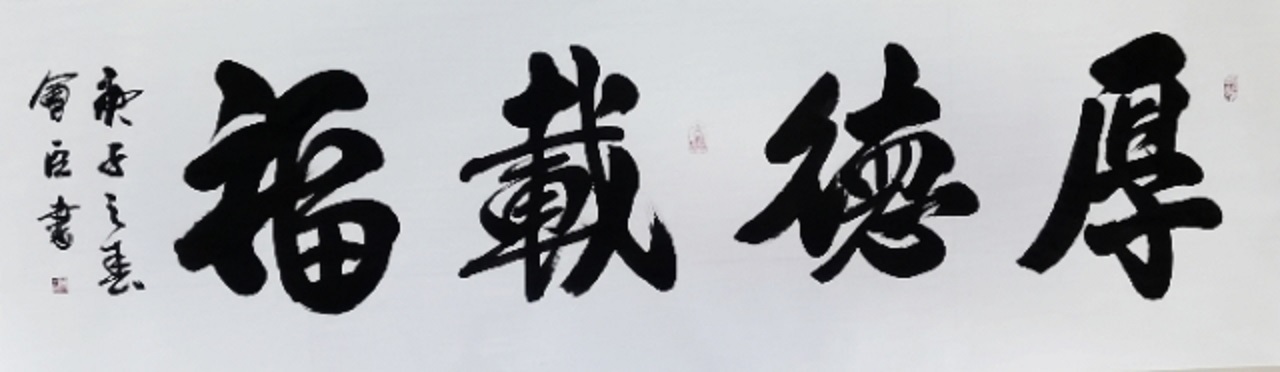 厚德載福
庚子之春
會臣書